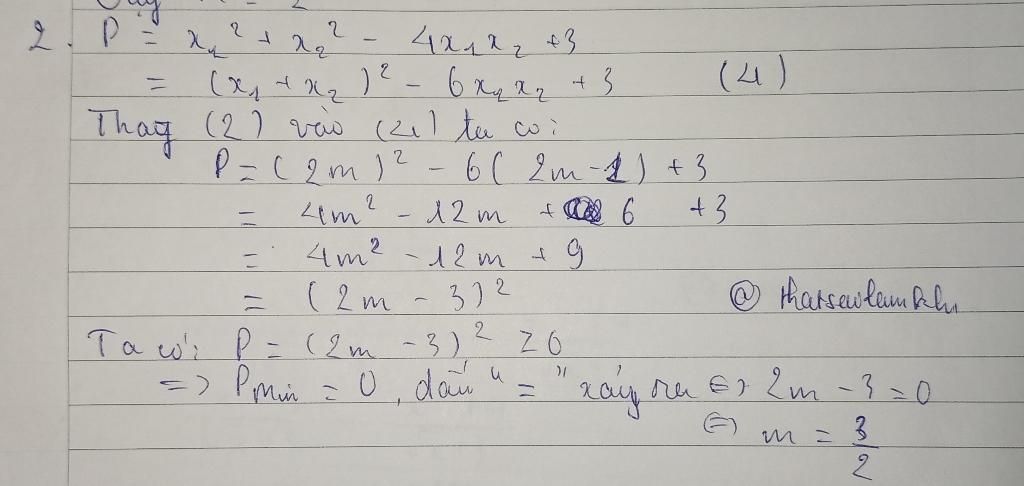 2. P = x₁² + x₂² - 4x₁x₂ + 3
= (x₁ + x₂)² - 6x₁x₂ + 3 (4)
Thay (2) vào (4) ta có:
P = (2m)² - 6(2m-1) + 3
= 4m² - 12m + 6 + 3
= 4m² - 12m + 9
= (2m - 3)²
Ta có: P = (2m - 3)² ≥ 0
=> Pmin = 0, dấu "=" xảy ra <=> 2m - 3 = 0
<=> m = 3/2